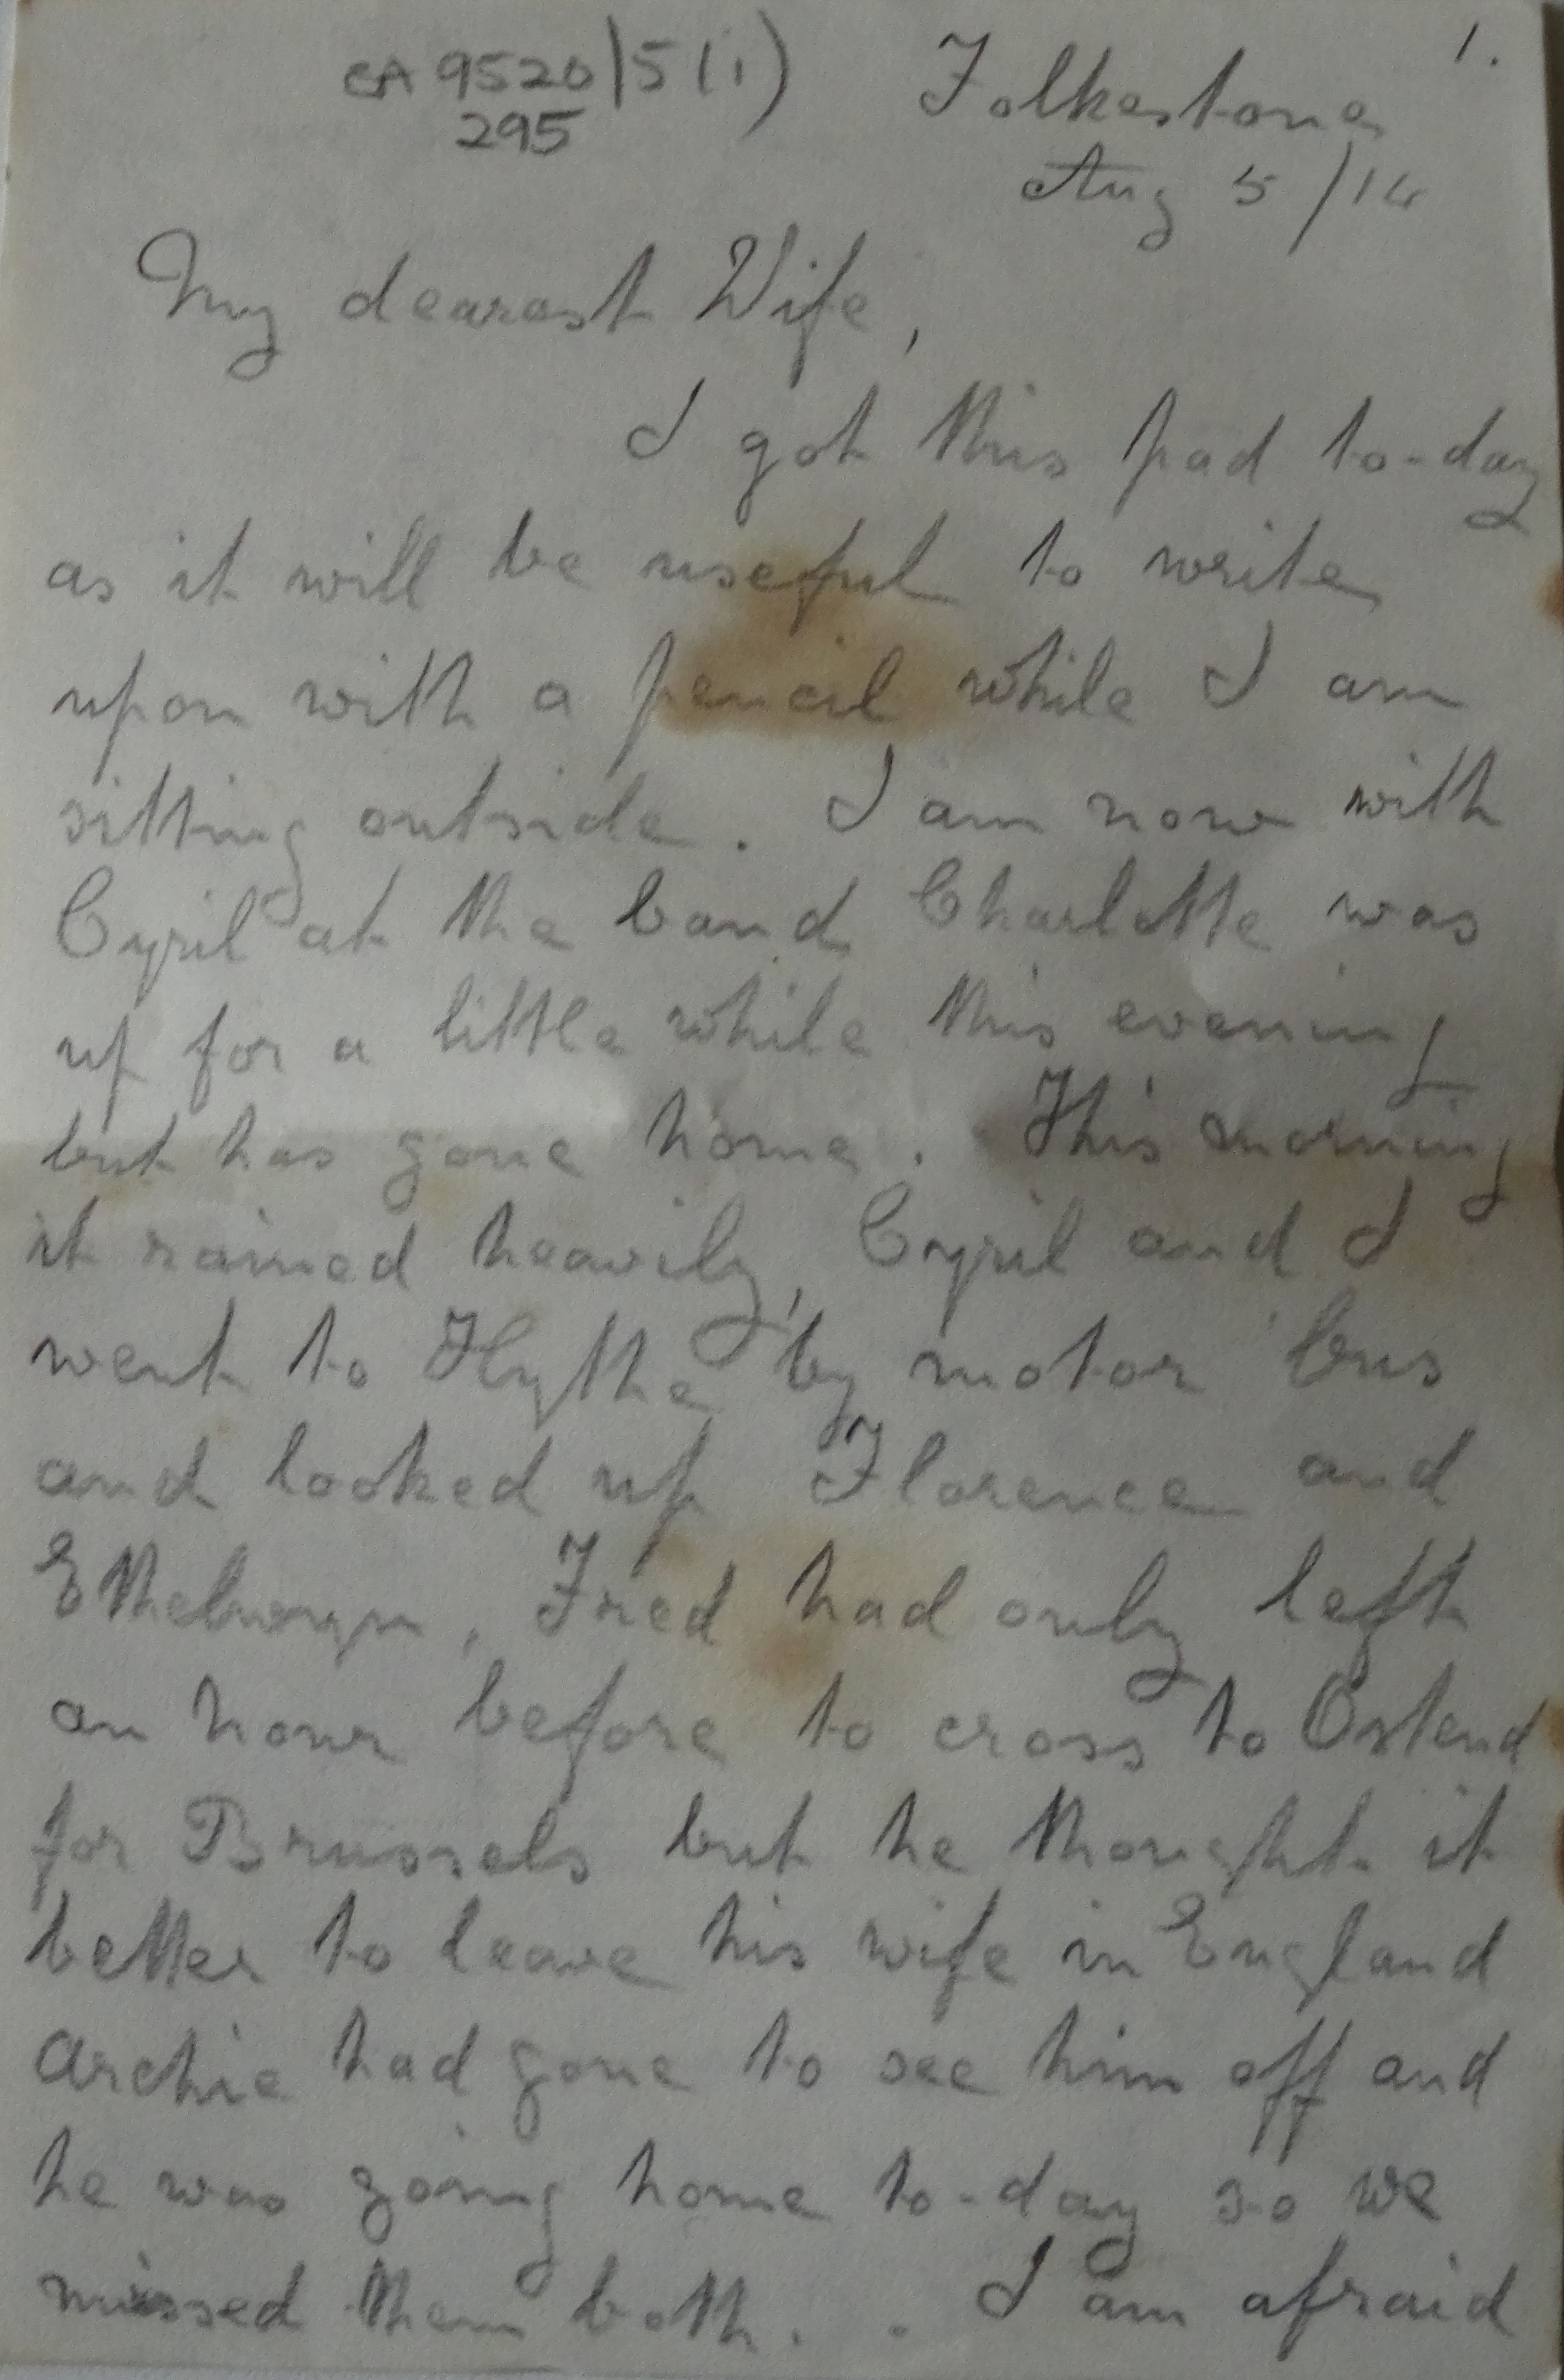 1.
CA 9520/5(1)
295
Folkestone
Aug 5/14
My dearest Wife,
I got this pad to-day
as it will be useful to write
upon with a pencil while I am
sitting outside. I am now with
Cyril at the band Charlotte was
up for a little while this evening
but has gone home. This morning
it rained heavily, Cyril and I
went to Hythe by motor bus
and looked up Florence and
Ethelwyn, Fred had only left
an hour before to cross to Ostend
for Brussels but he thought it
better to leave his wife in England
Archie had gone to see him off and
he was going home to-day so we
missed them both. . I am afraid